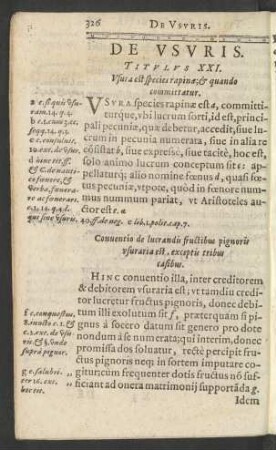 326 DE VSVRIS.
DE VSVRIS.
TITVLVS XXI.
Vsura est species rapinæ: & quando
committatur.
VSVRA species rapinæ est a, committi-
turque, vbi lucrum sorti, id est, princi-
pali pecuniæ, quæ debetur, accedit, siue lu-
crum in pecunia numerata, siue in alia re
cōsistat b, siue expresse, siue tacitè, hoc est,
solo animo lucrum conceptum sit c: ap-
pellaturq; alio nomine fœnus d, quasi fœ-
tus pecuniæ, vtpote, quòd in fœnore num-
mus nummum pariat, vt Aristoteles
auctor est. e
a c. si quis vsu-
ram. 14. q. 4.
seqq. 14. q. 3.
c c. consuluit.
10. ext. de vsur.
d hinc tit. ff.
& C. de nauti-
co fœnore, &
verba, fœnera-
re ac fœnerari.
que siue vsuris.
20. ff. de neg. e lib. 1. polit. cap. 7.
Conuentio de lucrandis fructibus pignoris
vsuraria est, exceptis tribus
casibus.
HINC conuentio illa, inter creditorem
& debitorem vsuraria est; vt tamdiu credi-
tor lucretur fructus pignoris, donec debi-
tum illi exolutum sit f, præterquàm si pi-
gnus à socero datum sit genero pro dote
nondum à se numerata; qui interim, donec
promissa dos soluatur, rectè percipit fru-
ctus pignoris neq; in sortem imputare co-
gitur; cùm frequenter dotis fructus nō suf-
ficiant ad onera matrimonij supportāda g.
f c. conquestus.
g c. salubri-
ter 16. ext.
hoc tit.
Idem